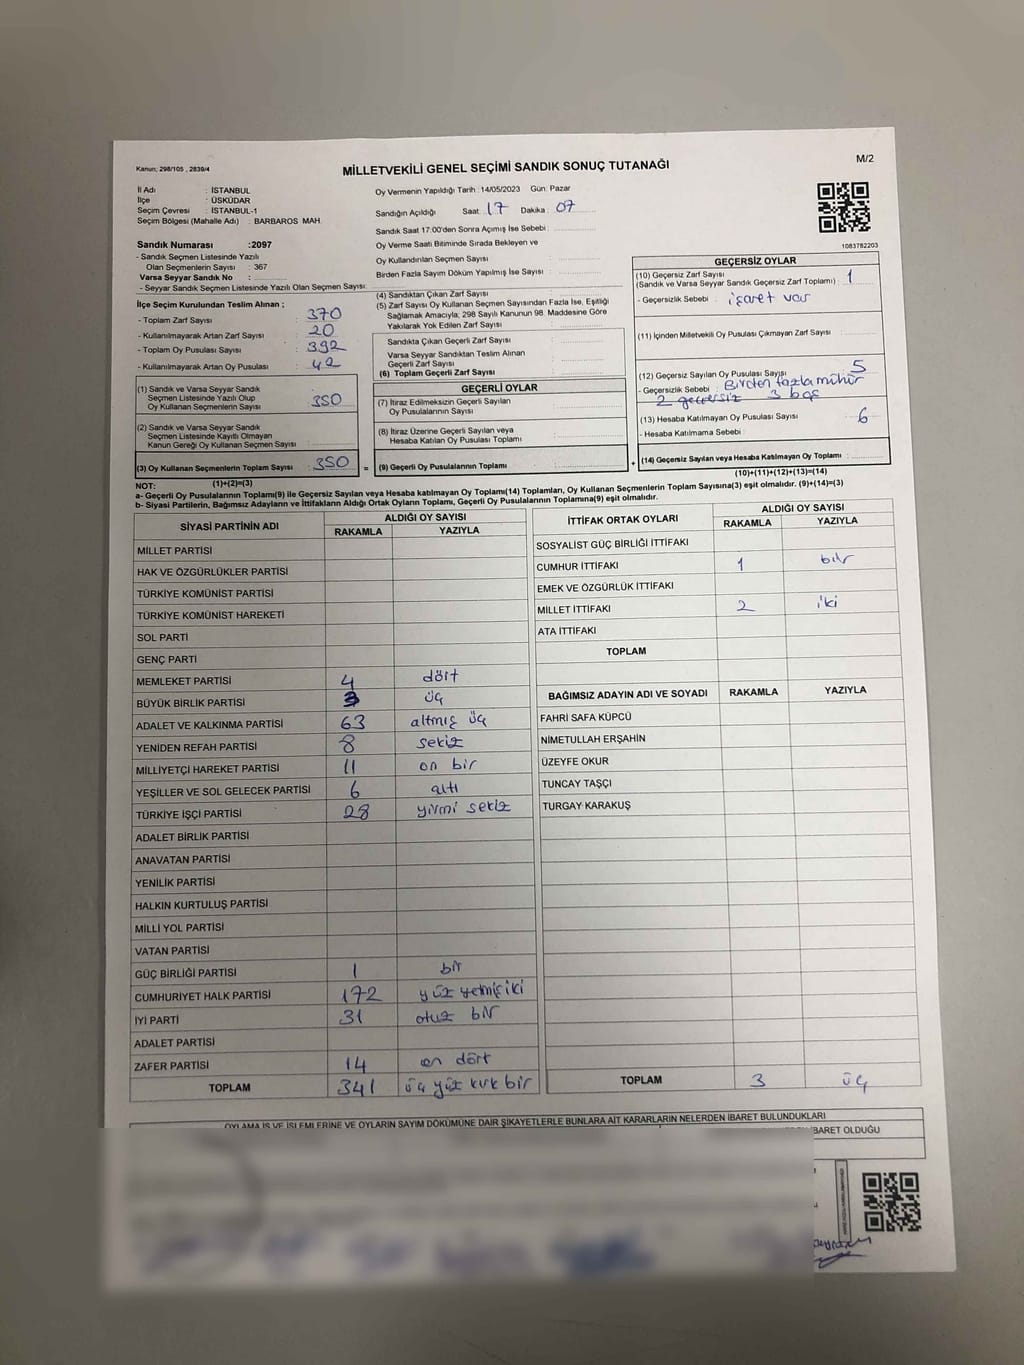 Kanun; 298/105 , 2839/4
MİLLETVEKİLİ GENEL SEÇİMİ SANDIK SONUÇ TUTANAĞI
M/2
İl Adı : İSTANBUL
İlçe : ÜSKÜDAR
Seçim Çevresi : İSTANBUL-1
Seçim Bölgesi (Mahalle Adı) : BARBAROS MAH.
Oy Vermenin Yapıldığı Tarih : 14/05/2023 Gün: Pazar
Sandığın Açıldığı Saat 17 Dakika : 07
Sandık Saat 17:00'den Sonra Açımış İse Sebebi :
Oy Verme Saati Bitiminde Sırada Bekleyen ve
Oy Kullandırılan Seçmen Sayısı :
Birden Fazla Sayım Döküm Yapılmış İse Sayısı :
1083782203
Sandık Numarası :2097
- Sandık Seçmen Listesinde Yazılı
Olan Seçmenlerin Sayısı : 367
Varsa Seyyar Sandık No :
- Seyyar Sandık Seçmen Listesinde Yazılı Olan Seçmen Sayısı:
İlçe Seçim Kurulundan Teslim Alınan ;
- Toplam Zarf Sayısı : 370
- Kullanılmayarak Artan Zarf Sayısı : 20
- Toplam Oy Pusulası Sayısı : 392
- Kullanılmayarak Artan Oy Pusulası : 42
(1) Sandık ve Varsa Seyyar Sandık
Seçmen Listesinde Yazılı Olup
Oy Kullanan Seçmenlerin Sayısı : 350
(2) Sandık ve Varsa Seyyar Sandık
Seçmen Listesinde Kayıtlı Olmayan
Kanun Gereği Oy Kullanan Seçmen Sayısı :
(3) Oy Kullanan Seçmenlerin Toplam Sayısı : 350 =
(1)+(2)=(3)
(4) Sandıktan Çıkan Zarf Sayısı :
(5) Zarf Sayısı Oy Kullanan Seçmen Sayısından Fazla İse, Eşitliği
Sağlamak Amacıyla; 298 Sayılı Kanunun 98. Maddesine Göre
Yakılarak Yok Edilen Zarf Sayısı :
Sandıkta Çıkan Geçerli Zarf Sayısı :
Varsa Seyyar Sandıktan Teslim Alınan
Geçerli Zarf Sayısı :
(6) Toplam Geçerli Zarf Sayısı :
GEÇERLİ OYLAR
(7) İtiraz Edilmeksizin Geçerli Sayılan
Oy Pusulalarının Sayısı :
(8) İtiraz Üzerine Geçerli Sayılan veya
Hesaba Katılan Oy Pusulası Toplamı :
(9) Geçerli Oy Pusulalarının Toplamı : +
GEÇERSİZ OYLAR
(10) Geçersiz Zarf Sayısı
(Sandık ve Varsa Seyyar Sandık Geçersiz Zarf Toplamı) : 1
- Geçersizlik Sebebi : işaret var
(11) İçinden Milletvekili Oy Pusulası Çıkmayan Zarf Sayısı :
(12) Geçersiz Sayılan Oy Pusulası Sayısı : 5
- Geçersizlik Sebebi : Birden fazla mühür
2 geçersiz 3 boş
(13) Hesaba Katılmayan Oy Pusulası Sayısı : 6
- Hesaba Katılmama Sebebi :
(14) Geçersiz Sayılan veya Hesaba Katılmayan Oy Toplamı :
(10)+(11)+(12)+(13)=(14)
NOT:
a- Geçerli Oy Pusulalarının Toplamı(9) ile Geçersiz Sayılan veya Hesaba katılmayan Oy Toplamı(14) Toplamları, Oy Kullanan Seçmenlerin Toplam Sayısına(3) eşit olmalıdır. (9)+(14)=(3)
b- Siyasi Partilerin, Bağımsız Adayların ve İttifakların Aldığı Ortak Oyların Toplamı, Geçerli Oy Pusulalarının Toplamına(9) eşit olmalıdır.
SİYASİ PARTİNİN ADI ALDIĞI OY SAYISI
RAKAMLA YAZIYLA
MİLLET PARTİSİ
HAK VE ÖZGÜRLÜKLER PARTİSİ
TÜRKİYE KOMÜNİST PARTİSİ
TÜRKİYE KOMÜNİST HAREKETİ
SOL PARTİ
GENÇ PARTİ
MEMLEKET PARTİSİ 4 dört
BÜYÜK BİRLİK PARTİSİ 3 üç
ADALET VE KALKINMA PARTİSİ 63 altmış üç
YENİDEN REFAH PARTİSİ 8 sekiz
MİLLİYETÇİ HAREKET PARTİSİ 11 on bir
YEŞİLLER VE SOL GELECEK PARTİSİ 6 altı
TÜRKİYE İŞÇİ PARTİSİ 28 yirmi sekiz
ADALET BİRLİK PARTİSİ
ANAVATAN PARTİSİ
YENİLİK PARTİSİ
HALKIN KURTULUŞ PARTİSİ
MİLLİ YOL PARTİSİ
VATAN PARTİSİ
GÜÇ BİRLİĞİ PARTİSİ 1 bir
CUMHURİYET HALK PARTİSİ 172 yüz yetmiş iki
İYİ PARTİ 31 otuz bir
ADALET PARTİSİ
ZAFER PARTİSİ 14 on dört
TOPLAM 341 üç yüz kırk bir
İTTİFAK ORTAK OYLARI ALDIĞI OY SAYISI
RAKAMLA YAZIYLA
SOSYALİST GÜÇ BİRLİĞİ İTTİFAKI
CUMHUR İTTİFAKI 1 bir
EMEK VE ÖZGÜRLÜK İTTİFAKI
MİLLET İTTİFAKI 2 iki
ATA İTTİFAKI
TOPLAM
BAĞIMSIZ ADAYIN ADI VE SOYADI RAKAMLA YAZIYLA
FAHRİ SAFA KÜPCÜ
NİMETULLAH ERŞAHİN
ÜZEYFE OKUR
TUNCAY TAŞÇI
TURGAY KARAKUŞ
TOPLAM 3 üç
OYLAMA İŞ VE İŞLEMLERİNE VE OYLARIN SAYIM DÖKÜMÜNE DAİR ŞİKAYETLERLE BUNLARA AİT KARARLARIN NELERDEN İBARET BULUNDUKLARI
İBARET OLDUĞU